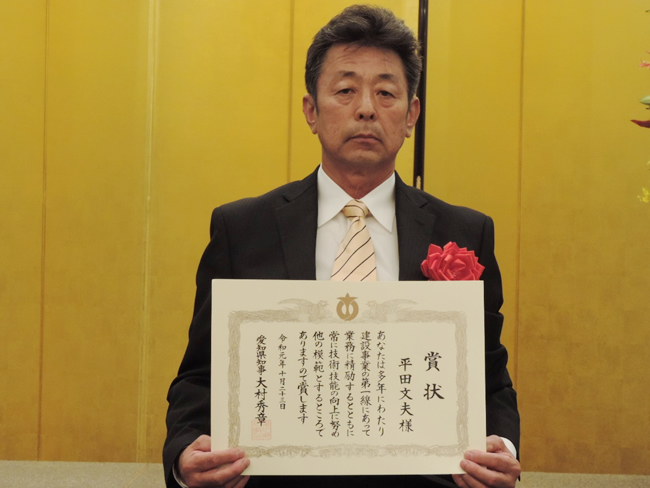 賞状
平田文夫様
あなたは多年にわたり
建設事業の第一線にあって
業務に精励するとともに
常に技術技能の向上に努め
他の模範とするところで
ありますので賞します
令和元年十月二十三日
愛知県知事大村秀章